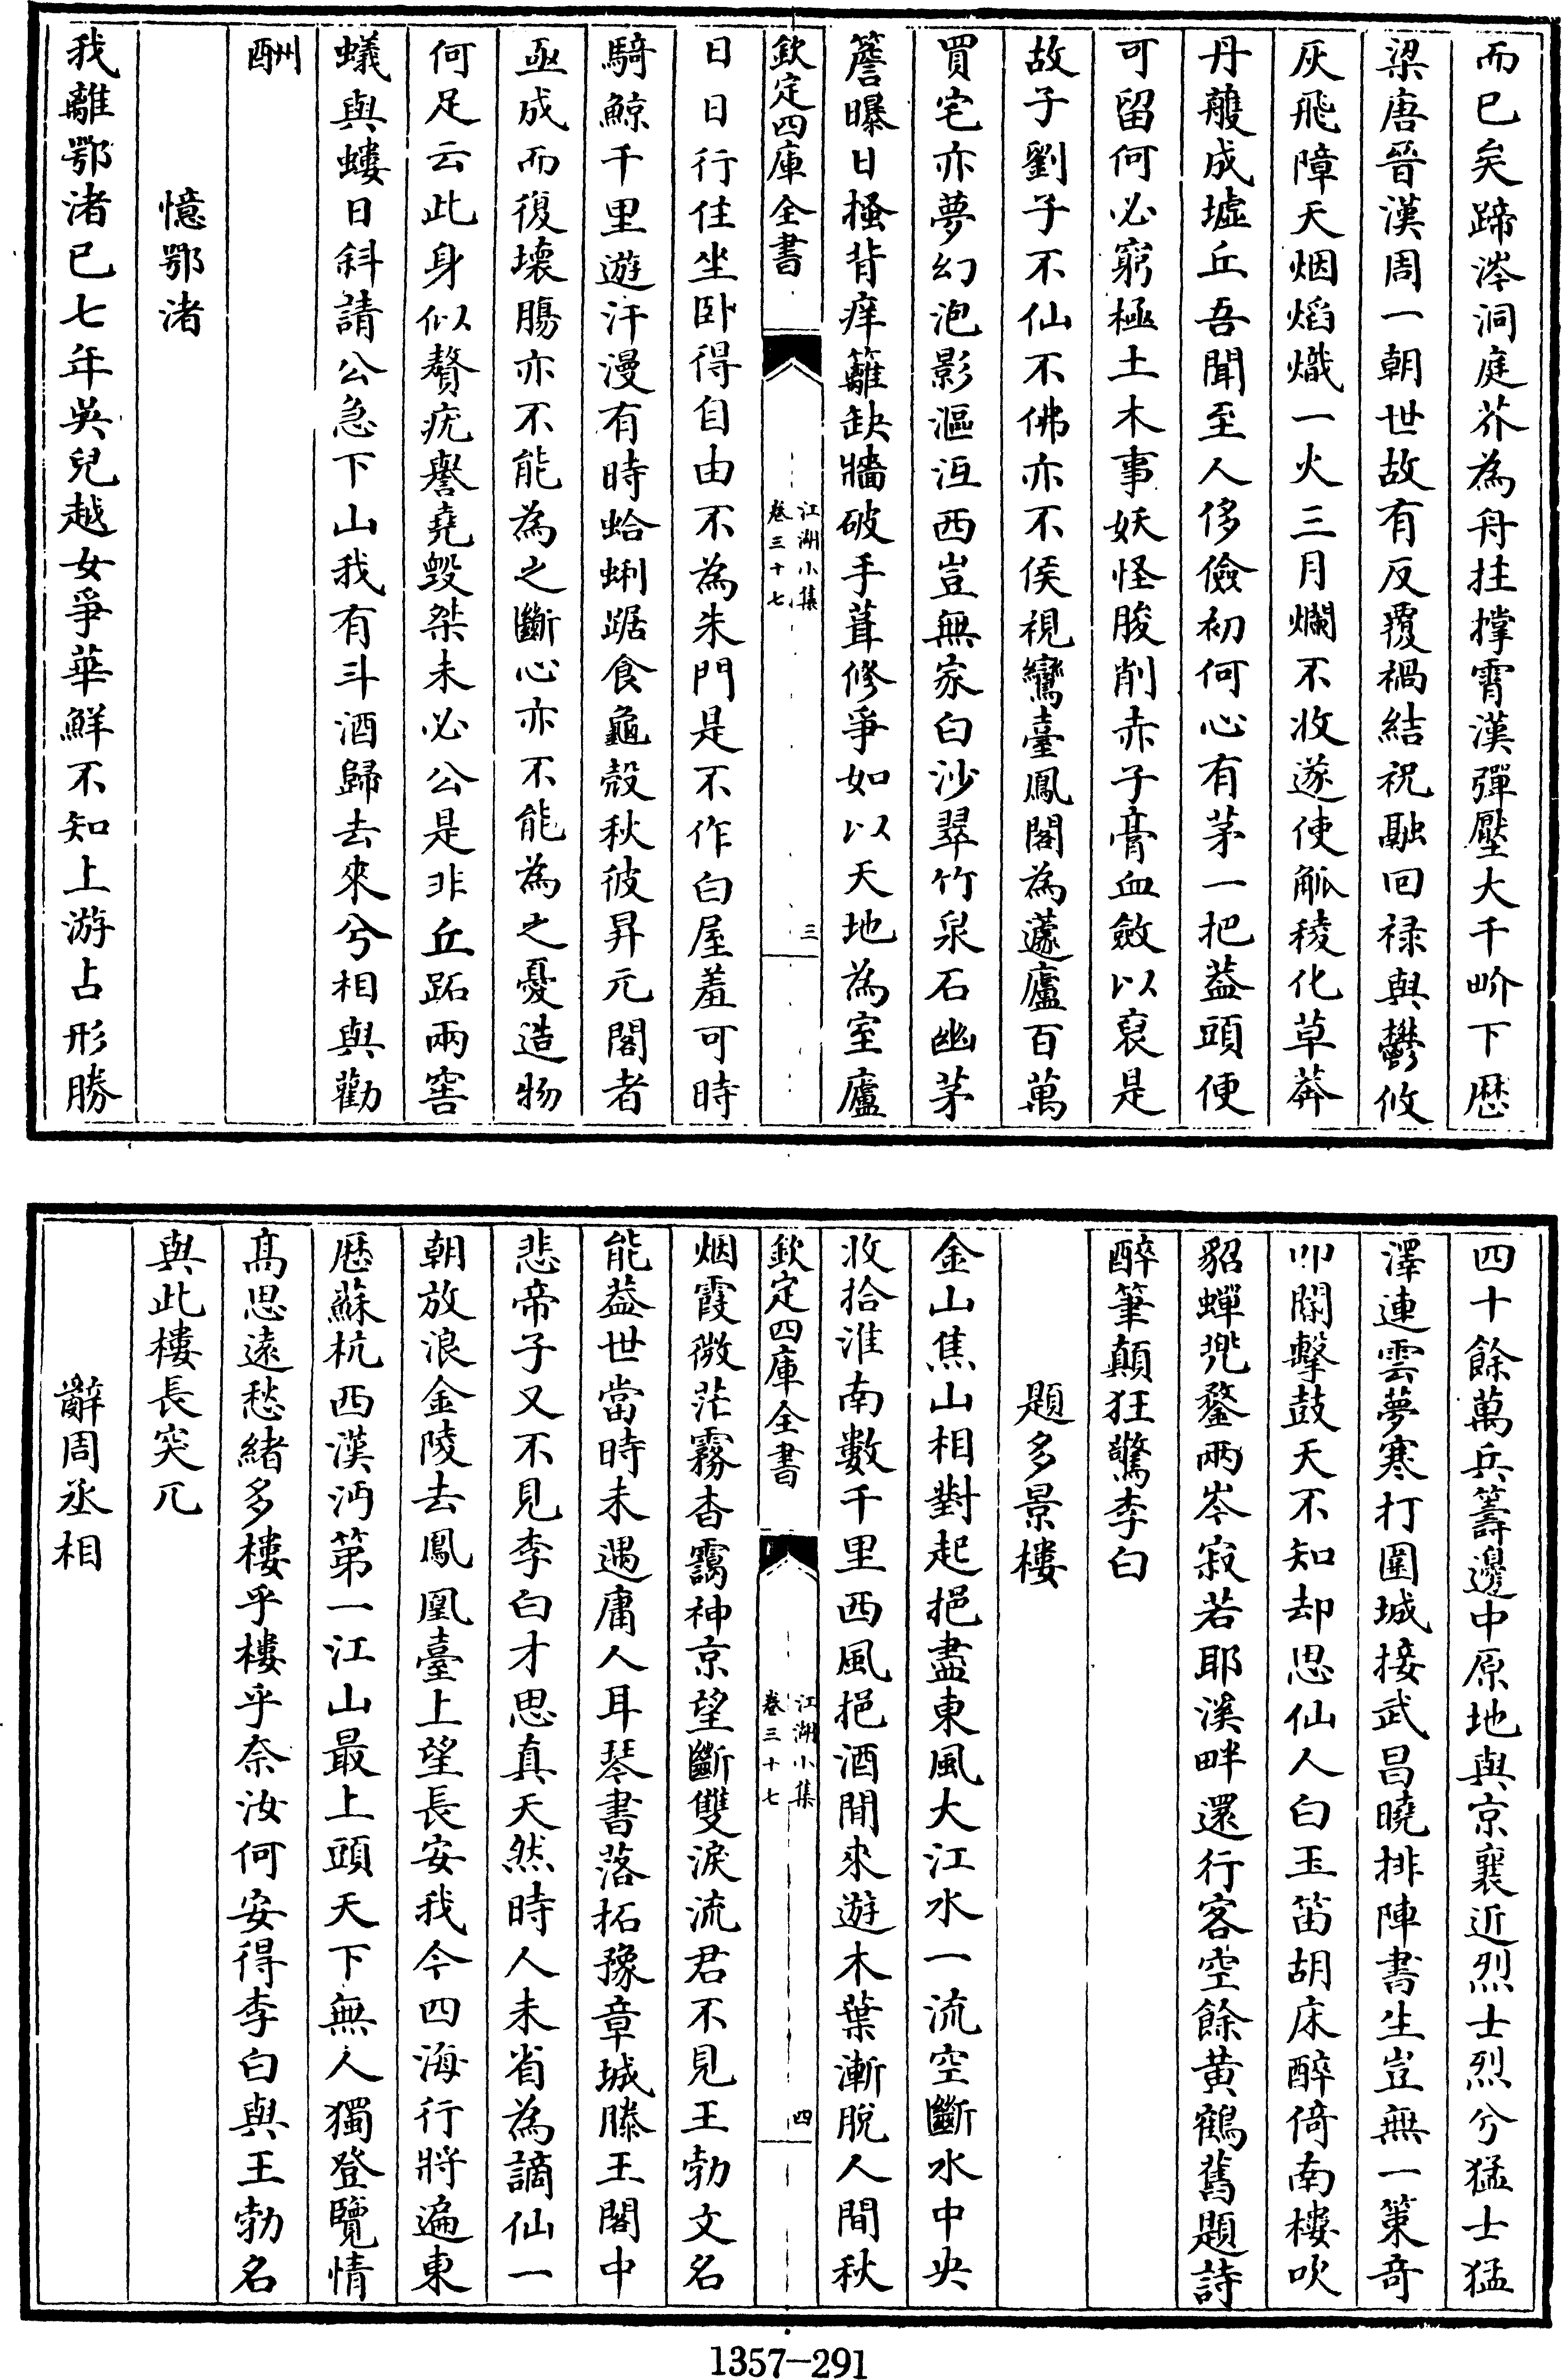 而已矣蹄涔洞庭芥為舟拄撑霄漢彈壓大千界下歴
梁唐晉漢周一朝世故有反覆禍結祝融回禄與鬱攸
灰飛障天烟焰熾一火三月爛不收遂使觚稜化草莽
丹雘成墟丘吾聞至人侈儉初何心有茅一把葢頭便
可留何必窮極土木事妖怪朘削赤子膏血斂以裒是
故子劉子不仙不佛亦不侯視鸞臺鳳閣為蘧廬百萬
買宅亦夢幻泡影漚沍西豈無家白沙翠竹泉石幽茅
簷曝日搔背痒籬缺牆破手葺修爭如以天地為室廬
欽定四庫全書
江湖小集
卷三十七
三
日日行住坐卧得自由不為朱門是不作白屋羞可時
騎鯨千里遊汗漫有時蛤蜊踞食龜殻秋彼昇元閣者
亟成而復壊膓亦不能為之斷心亦不能為之憂造物
何足云此身似贅疣譽堯毁桀未必公是非丘跖兩窖
蟻與螻日斜請公急下山我有斗酒歸去來兮相與勸
酬
憶鄂渚
我離鄂渚已七年吳兒越女爭華鮮不知上游占形勝
四十餘萬兵籌邊中原地與京襄近烈士烈兮猛士猛
澤連雲夢寒打圍城接武昌曉排陣書生豈無一策奇
叩關擊鼓天不知却思仙人白玉笛胡床醉倚南樓吹
貂蟬兠鍪兩岑寂若耶溪畔還行客空餘黄鶴舊題詩
醉筆顛狂驚李白
題多景樓
金山焦山相對起挹盡東風大江水一流空斷水中央
收拾淮南數千里西風挹酒閒來遊木葉漸脫人間秋
欽定四庫全書
江湖小集
卷三十七
四
烟霞微茫霧杳靄神京望斷雙淚流君不見王勃文名
能葢世當時未遇庸人耳琴書落拓豫章城滕王閣中
悲帝子又不見李白才思真天然時人未省為謫仙一
朝放浪金陵去鳳凰臺上望長安我今四海行將遍東
歴蘇杭西漢沔第一江山最上頭天下無人獨登覽情
髙思遠愁緒多樓乎樓乎奈汝何安得李白與王勃名
與此樓長突兀
辭周丞相
1357-291